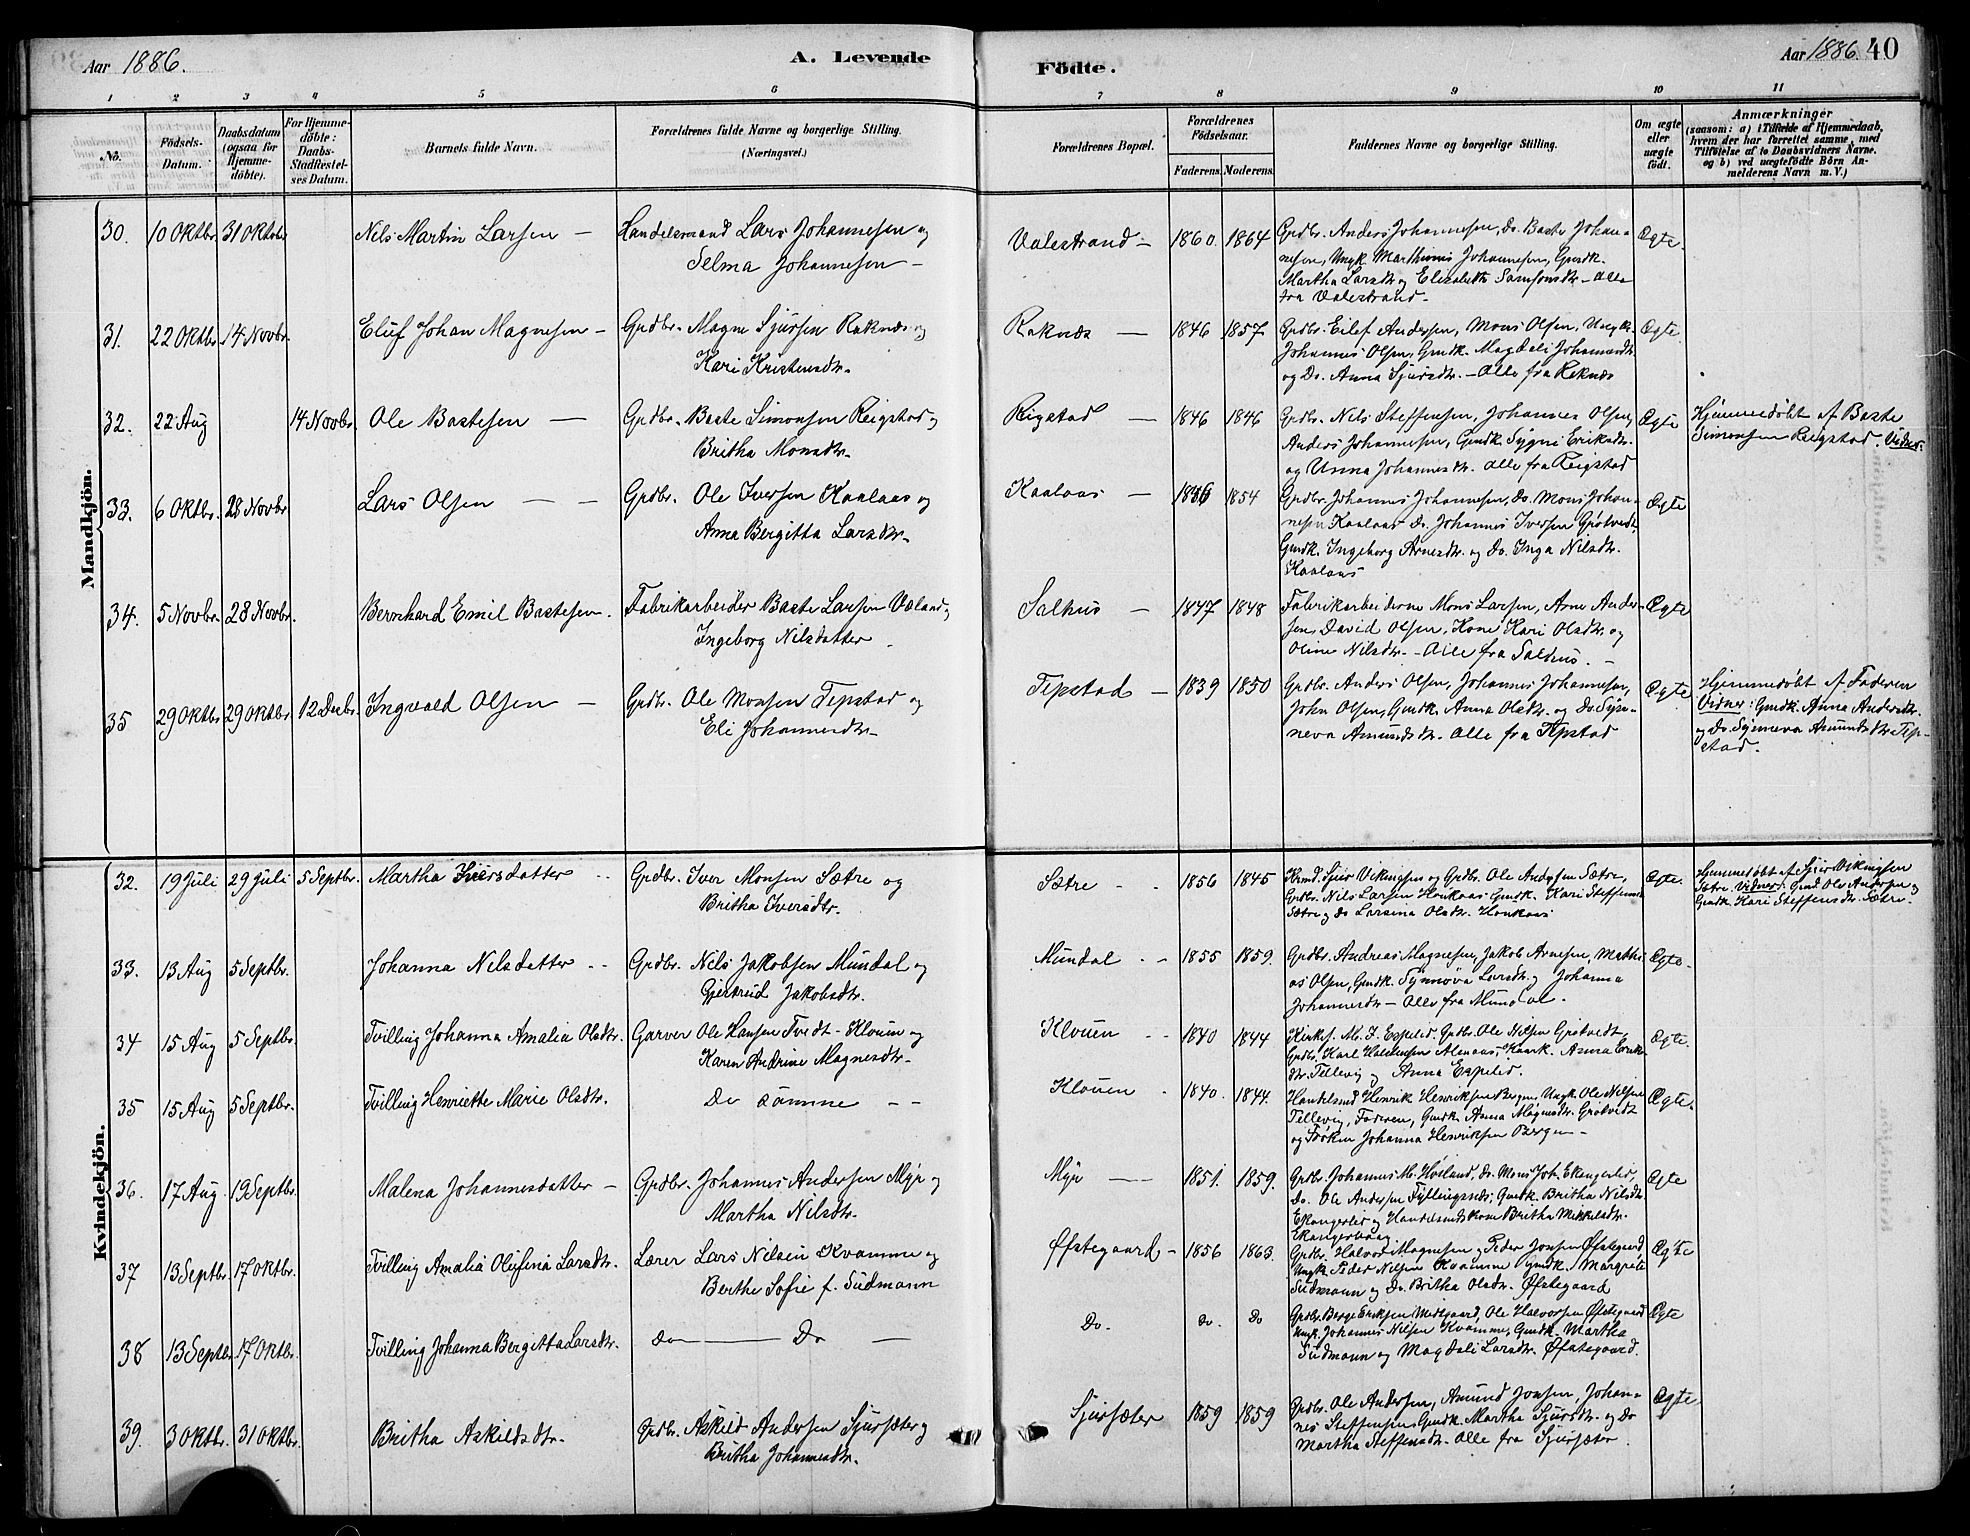 Aar 1886.
A. Levende
Födte.
Aar 1886. 40
1 2 3 4 5 6 7 8 9 10 11
No.
Födsels-
Datum.
Daabsdatum
(ogsaa for
Hjemme-
döbte).
For Hjemme-
döbte:
Daabs-
Stadfæstel-
ses Datum.
Barnets fulde Navn.
Forældrenes fulde Navne og borgerlige Stilling.
(Næringsvei.)
Forældrenes Bopæl.
Forældrenes
Födselsaar.
Faderens. Moderens.
Faddernes Navne og borgerlige Stilling.
Om ægte
eller
uægte
födt.
Anmærkninger
(saasom: a) i Tilfælde af Hjemmedaab,
hvem der har forrettet samme, med
Tilföielse af to Daabsvidners Navne.
og b) ved uægtefödte Börn An-
melderens Navn m. V.)
Mandkjön.
30. 10 Oktbr. 31 Oktobr Nils Martin Larsen — Handelsmand Lars Johannesen og
Selma Johannesen —
Valestrand — 1860. 1864 Grdbr. Anders Johannesen, Do. Baste Johan-
nesen, Ungk. Marthinus Johannesen, Gmdk.
Martha Larsdtr. og Elisabeth Samsonsdtr. — Alle
fra Valestrand.
Ægte.
31. 22 Oktbr. 14 Novbr. Eluf Johan Magnesen — Grdbr. Magne Sjursen Raknæs og
Kari Kristensdtr.
Raknæs — 1846 1857 Grdbr. Eilef Andersen, Mons Olsen, Ungk.
Johannes Olsen, Gmdk. Magdeli Johannesdtr.
og Do. Anna Sjursdtr. — Alle fra Raknæs
Ægte.
32. 22 Aug 14 Novbr. Ole Bastesen — Grdbr. Baste Simonsen Reigstad og
Britha Monsdtr.
Rigstad — 1846 1846 Grdbr. Nils Steffensen, Johannes Olsen,
Anders Johannesen, Gmdk. Sygni Eriksdtr.
og Unna Johannesdtr. Alle fra Reigstad
Ægte
Hjemmedøbt af Baste
Simonsen Reigstad. Vidner:
33. 6 Oktbr. 28 Novbr Lars Olsen — — Grdbr. Ole Iversen Kaalaas og
Anna Bergitta Larsdtr.
Kaalaas — 1854 Grdbr. Johannes Johannesen, Do. Mons Johan-
nesen Kaalaas Do. Johannes Iversen Grøtvedt,
Gmdk. Ingeborg Arnesdtr. og Do. Inga Nilsdtr.
Kaalaas
Ægte
34. 5 Novbr. 28 Novbr. Bernhard Emil Bastesen. Fabrikarbeider Baste Larsen Væland og
Ingeborg Nilsdatter
Salhus — 1847 1848 Fabrikarbeiderne Mons Larsen, Arne Ander-
sen, David Olsen, Kone Kari Olsdtr. og
Oline Nilsdtr. — Alle fra Salhus. —
Ægte
35 29 Oktbr. 29 Oktbr. 12 Decbr. Ingvald Olsen — Grdbr. Ole Monsen Tepstad og
Eli Johannesdtr.
Tepstad — 1839 1850 Grdbr. Anders Olsen, Johannes Johannesen,
John Olsen, Gmdk. Anna Olsdtr. og Do. Syn-
neva Amundsdtr. Alle fra Tepstad
Ægte
Hjemmedøbt af Faderen
Vidner: Gmdk. Anna Andersdtr.
og Do. Synneva Amundsdtr. Tep-
stad.
Kvindekjön.
32. 19 Juli 29 Juli 5 Septbr. Martha Iversdatter Grdbr. Iver Monsen Sætre og
Britha Iversdtr.
Sætre 1856 1845 Sjur Vikingsen og Grdbr. Ole Andersen Sætre,
Grdbr. Nils Larsen Honkaas Gmdk. Kari Steffensd.
Sætre og Do Larsina Olsdtr. Honkaas
Ægte.
Hjemmedøbt af Sjur Vikingsen
Sætre. Vidner: Gmd. Ole Andersen og
Gmdk. Kari Steffensdtr. Sætre.
33. 13 Aug 5 Septbr. Johanna Nilsdatter Grdbr. Nils Jakobsen Mundal og
Gjertrud Jakobsdtr.
Mundal 1855 1859. Grdbr. Andreas Magnesen, Jakob Arnesen, Mathi-
as Olsen, Gmdk. Synnøva Larsdtr. og Johanna
Johannesdtr. — Alle fra Mundal.
Ægte.
34 15 Aug 5 Septbr. Tvilling Johanna Amalia Olsdtr. Garver Ole Hansen Tvedt - Klouen og
Karen Andrine Magnesdtr.
Klouen 1840 1844 Kirkes. M. J. Espelid, Grdbr. Ole Nilsen Grøtvedt,
Grdbr. Karl Alenaas, Anna Erik-
dtr. Tellevig og Anna Espelid.
Ægte.
35 15 Aug 5 Septbr. Tvilling Henriette Marie Olsdtr. De samme
Klouen 1840. 1844. Handelsmd Henrik Henriksen Bergen, Ungk. Ole Nilsen
Tellevig, Faderen, Gmdk. Anna Magnesdtr. Grøtvedt
og Frøken Johanna Henriksen Bergen —
Ægte.
36. 17 Aug 19 Septbr. Malena Johannesdatter — Grdbr. Johannes Andersen Myr og
Martha Nilsdtr.
Myr — 1851. 1859. Grdbr. Johannes M. Høeland, Do. Mons Joh. Ekangerlid,
Do. Ole Andersen Fyllingsnæs, Gmdk. Britha Nilsdtr.
Ekangerlid og Handelsmdskone Britha Mikkelsdtr.
Ægte
37 13 Septbr. 17 Oktbr. Tvilling Amalia Olufina Larsdtr. Lærer Lars Nilsen Kvamme og
Berthe Sofie f. Südmann
Øfstegaard — 1856 1863. Grdbr. Halvor Magnesen og Peder Jonsen Øfstegaard,
Ungk. Peder Nilsen Kvamme Gmdk. Margrete
Südmann og Do. Britha Olsdtr. Øfstegaard
Ægte
38 13 Septbr. 17 Oktbr. Tvilling Johanna Bergitta Larsdtr. Do — Do —
Do. Do. Do Grdbr. Berge Eriksen Midtgaard, Ole Halvorsen Øfstegaard
Ungk. Johannes Nilsen Kvamme, Gmdk. Martha
Südmann og Magdeli Larsdtr. Øfstegaard.
Ægte
39. 3 Oktbr. 31 Oktbr Britha Askildsdtr. Grdbr. Askild Andersen Sjursæter og
Britha Johannesdtr.
Sjursæter 1859 1859 Grdbr. Ole Andersen, Amund Jonsen, Johan-
nes Steffensen Gmdk. Martha Sjursdtr. og Do
Martha Steffensdtr. Alle fra Sjursæter.
Ægte